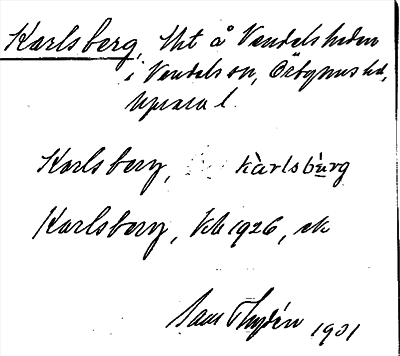 Karlsberg, Ht å Vendelsheden
i Vendels sn, Örbyhus hd,
Upsala l.
Karlsberg, kàrlsbùrg
Karlsberg, kb 1926, ek
1931